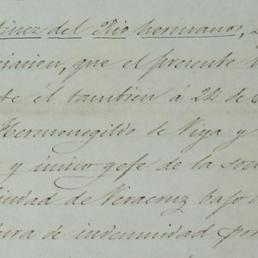 tinez del Rio hermanos,
que el presente
te él tambien á 22 de
Hermenegildo de Viya y
y único gefe de la soc
iudad de Veracruz bajo
ura de indemnidad por